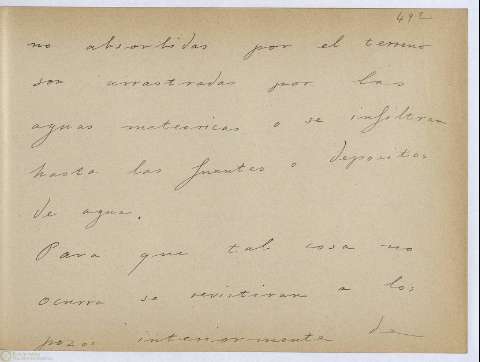 492
no absorbidas por el terreno
son arrastradas por las
aguas meteoricas o se infiltran
hasta las fuentes o depositos
de agua.
Para que tal cosa no
ocurra se revistiran a los
pozos interiormente de